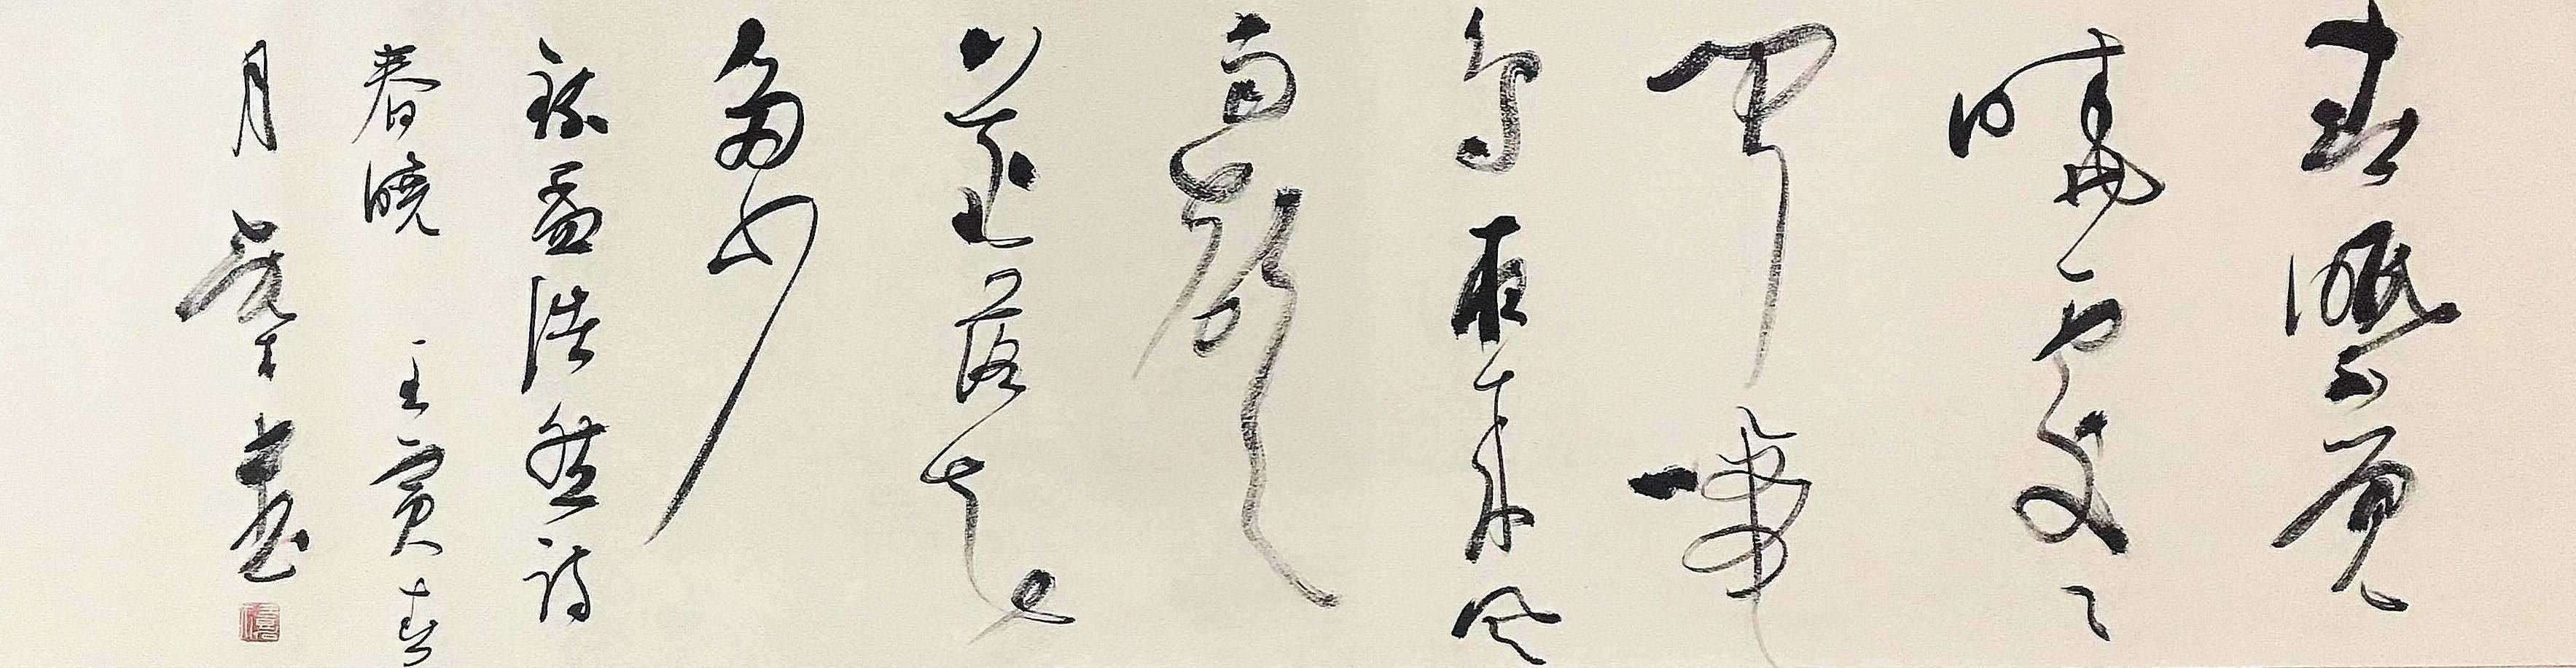 春眠不覺
曉處々
聞啼
鳥夜来風
雨聲
花落知
多少
錄孟浩然詩
春曉 壬寅春
月 書